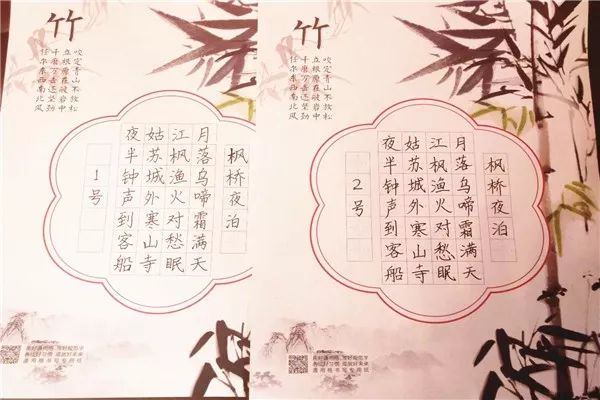 竹
咬定青山不放松
立根原在破岩中
千磨万击还坚劲
任尔东西南北风
枫桥夜泊
月落乌啼霜满天
江枫渔火对愁眠
姑苏城外寒山寺
夜半钟声到客船
1号
养成好习惯 造就好未来
书写专用纸
竹
咬定青山不放松
立根原在破岩中
千磨万击还坚劲
任尔东西南北风
枫桥夜泊
月落乌啼霜满天
江枫渔火对愁眠
姑苏城外寒山寺
夜半钟声到客船
2号
养成好习惯 造就好未来
书写专用纸